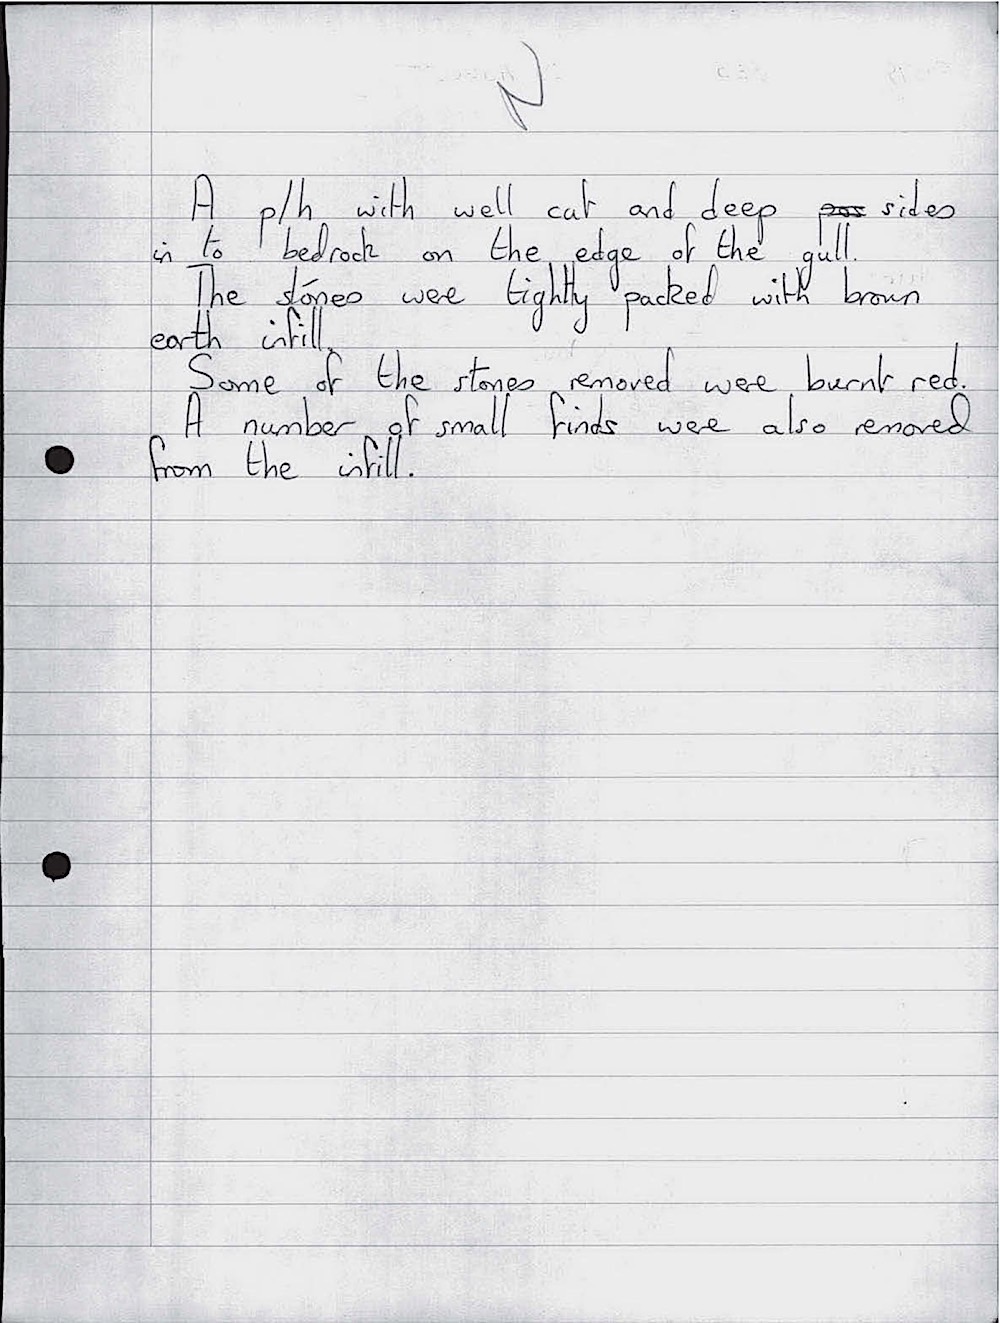 A p/h with well cut and deep sides
in to bedrock on the edge of the gull.
The stones were tightly packed with brown
earth infill.
Some of the stones removed were burnt red.
A number of small finds were also removed
from the infill.